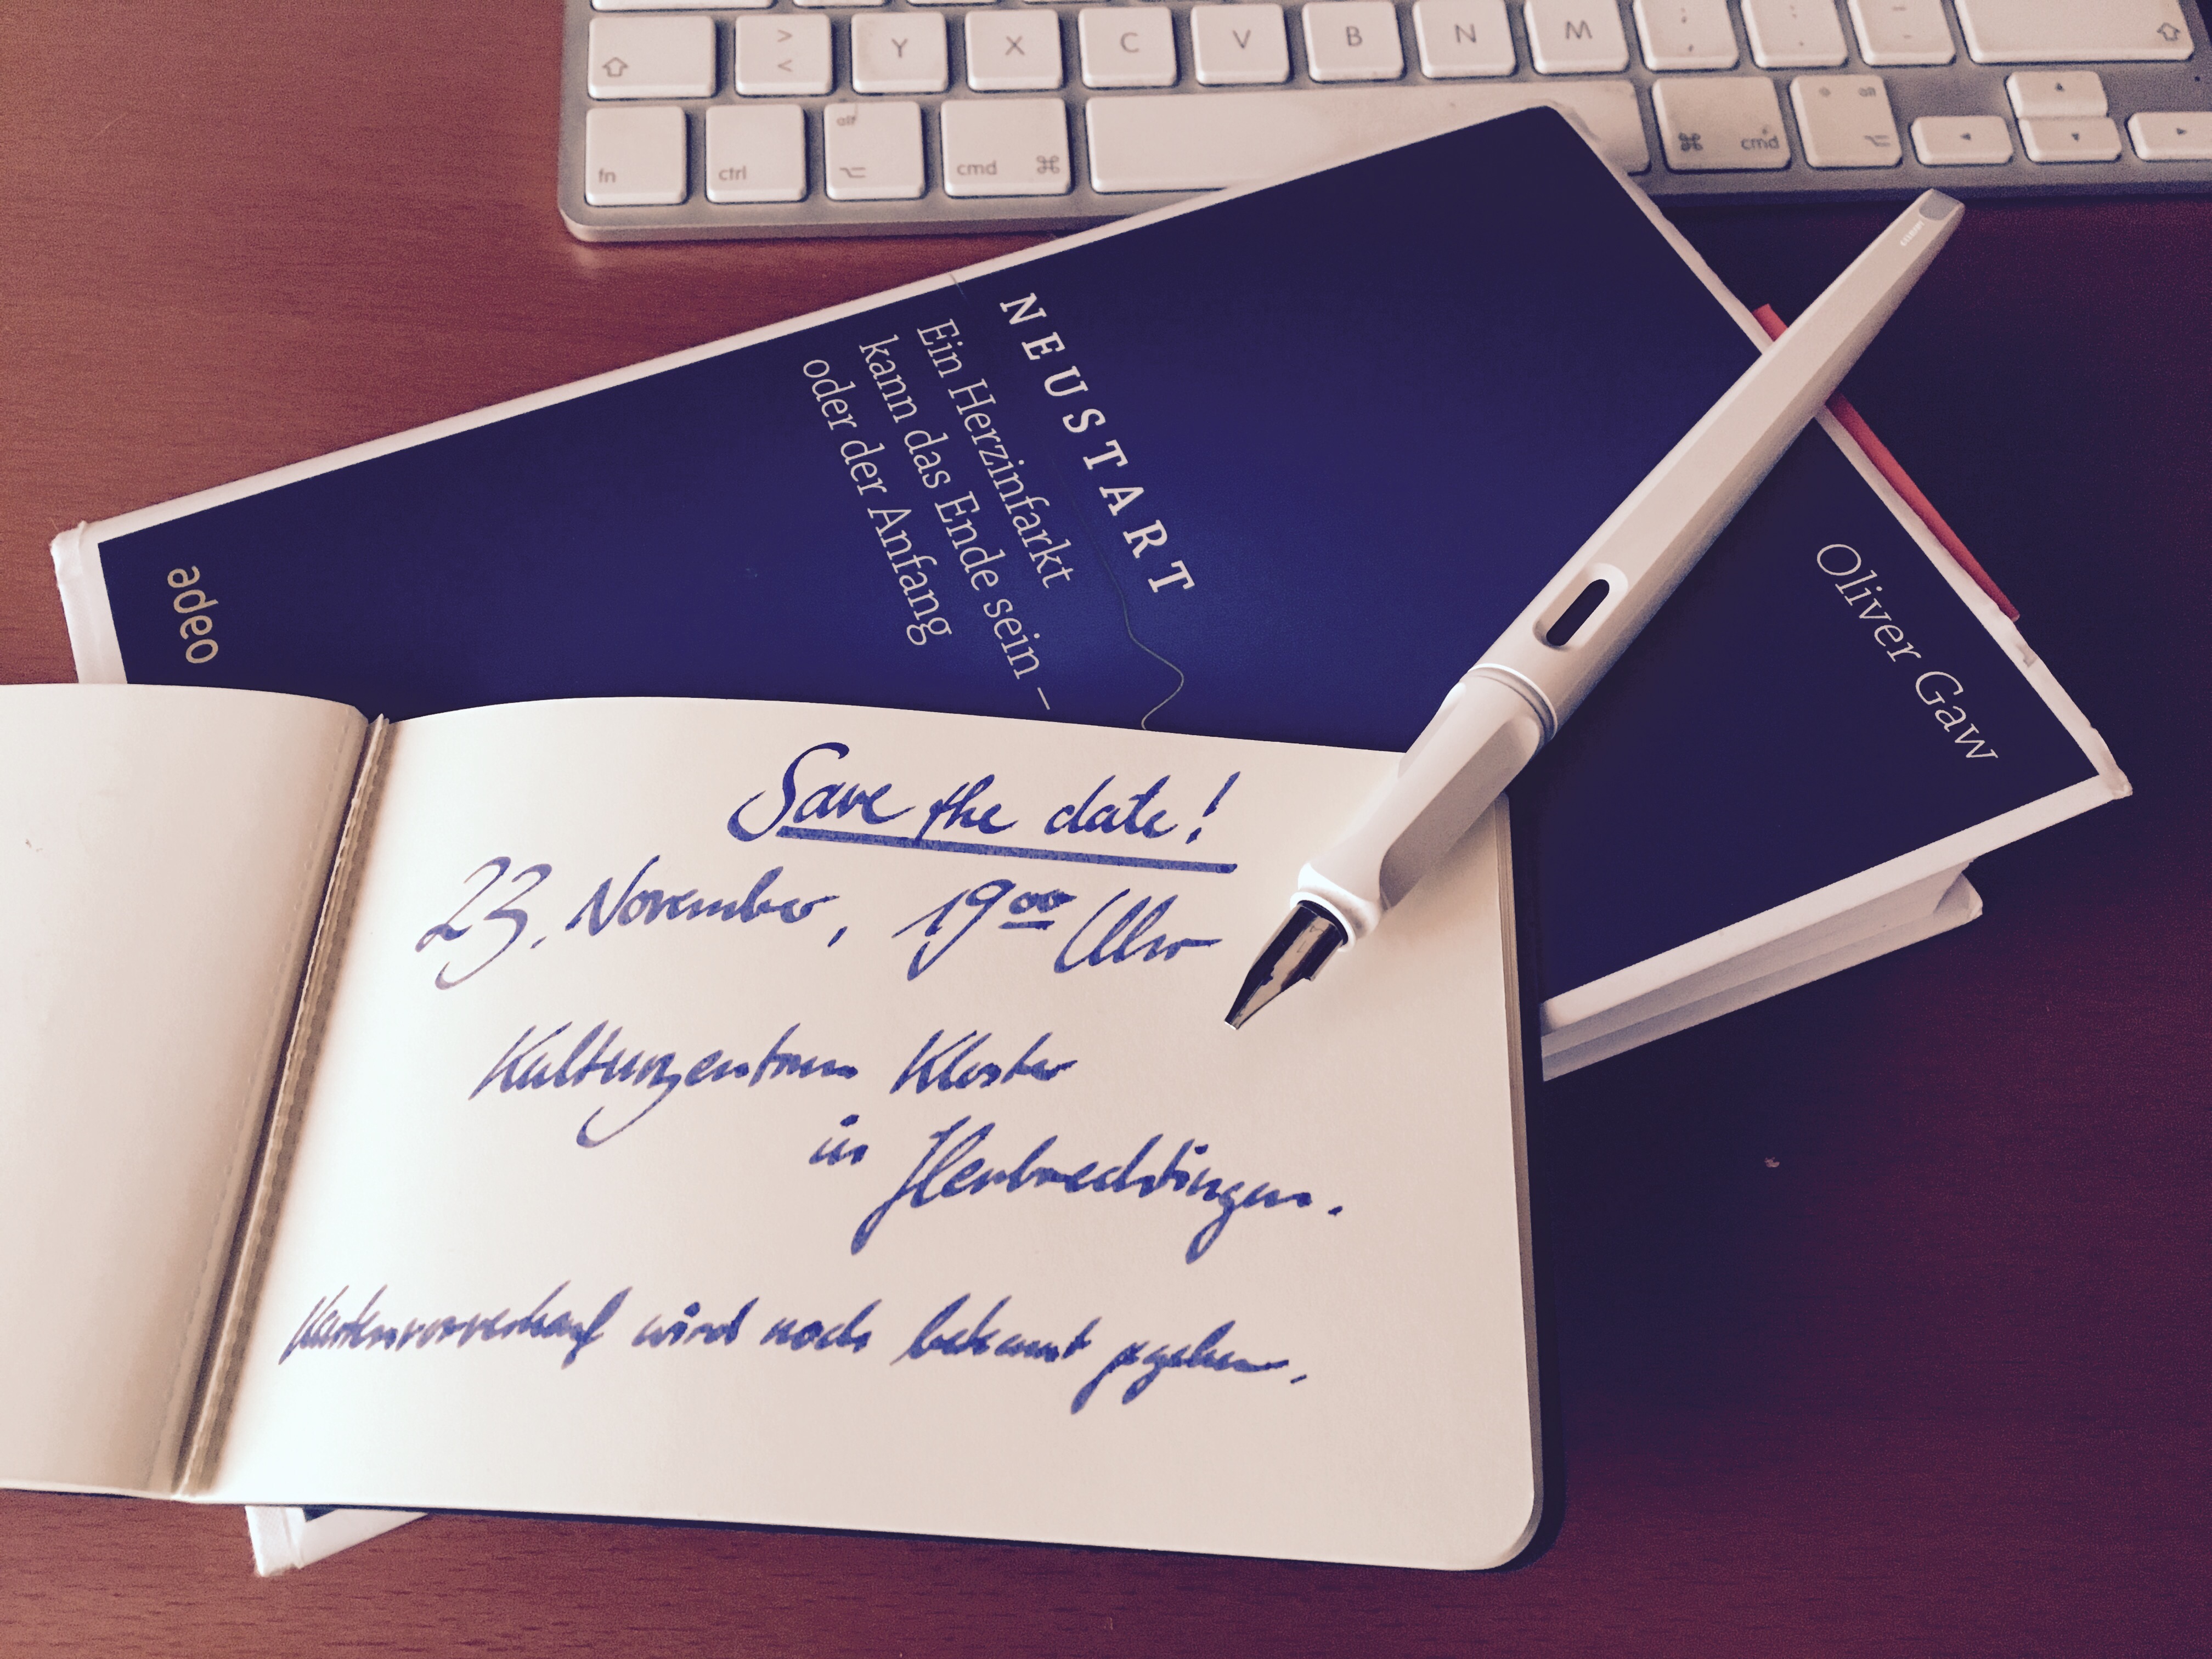 > <
Y X C V B N M ; , : . _ -
fn ctrl alt cmd cmd alt
NEUSTART
Ein Herzinfarkt
kann das Ende sein –
oder der Anfang
adeo
Oliver Gaw
Save the date!
23. November, 19⁰⁰ Uhr
Kulturzentrum Kloster
in Herbrechtingen.
Kartenvorverkauf wird noch bekannt gegeben.